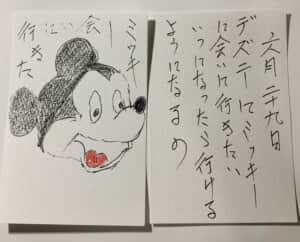 六月二十九日
デズニーにミッキー
に会いに行きたい
いつになったら行ける
ようになるの
ミッキー
に会いに
行きた